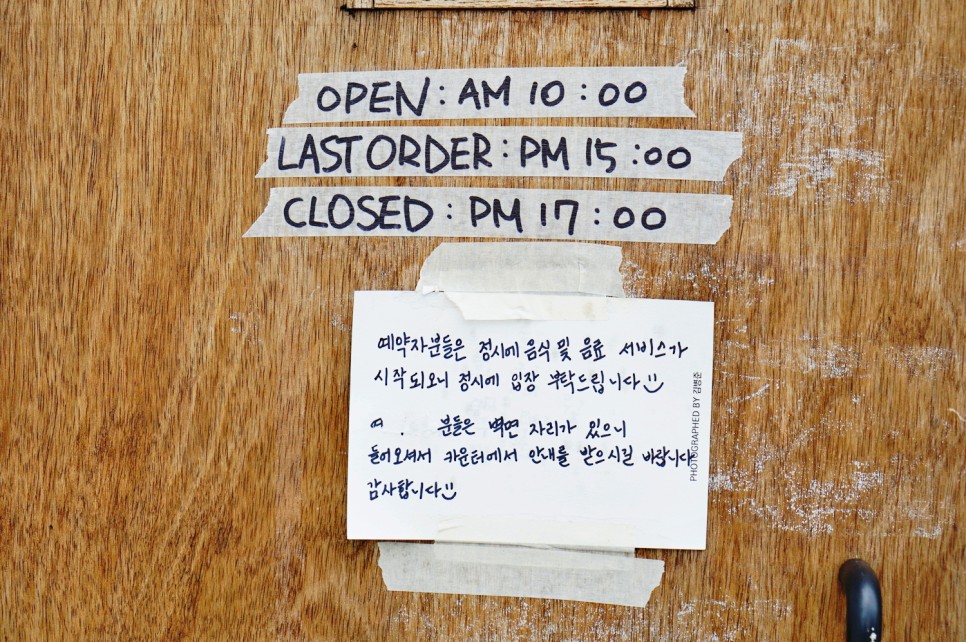 OPEN : AM 10 : 00
LAST ORDER : PM 15 : 00
CLOSED : PM 17 : 00
예약자분들은 정시에 음식 및 음료 서비스가
시작되오니 정시에 입장 부탁드립니다
분들은 벽면 자리가 있으니
들어오셔서 카운터에서 안내를 받으시길 바랍니다
감사합니다
PHOTOGRAPHED BY 김병준